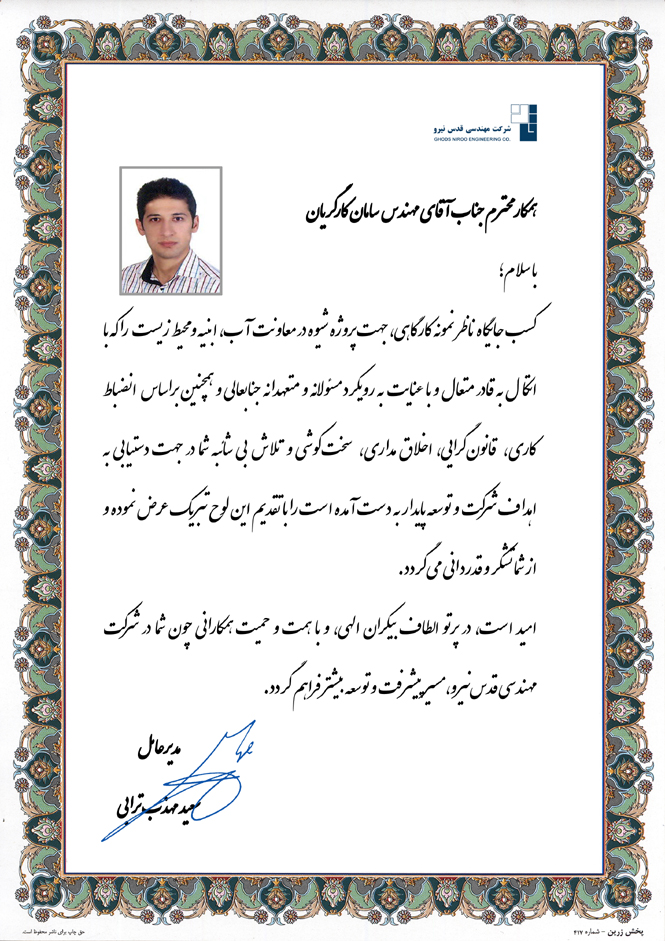 شرکت مهندسی قدس نیرو
GHODS NIROO ENGINEERING CO.
همکار محترم جناب آقای مهندس سامان کارگریان
با سلام؛
کسب جایگاه ناظر نمونه کارگاهی، جهت پروژه شیوه در معاونت آب، ابنیه و محیط زیست را که با
اتکال به قادر متعال و با عنایت به رویکرد مسئولانه و متعهدانه جنابعالی و همچنین براساس انضباط
کاری، قانون گرایی، اخلاق مداری، سخت کوشی و تلاش بی شائبه شما در جهت دستیابی به
اهداف شرکت و توسعه پایدار به دست آمده است را با تقدیم این لوح تبریک عرض نموده و
از شما تشکر و قدردانی می گردد.
امید است، در پرتو الطاف بیکران الهی، و با همت و حمیت همکارانی چون شما در شرکت
مهندسی قدس نیرو، مسیر پیشرفت و توسعه بیشتر فراهم گردد.
مدیرعامل
سعید مهذب ترابی
پخش زرین - شماره ۴۱۷
حق چاپ برای ناشر محفوظ است.